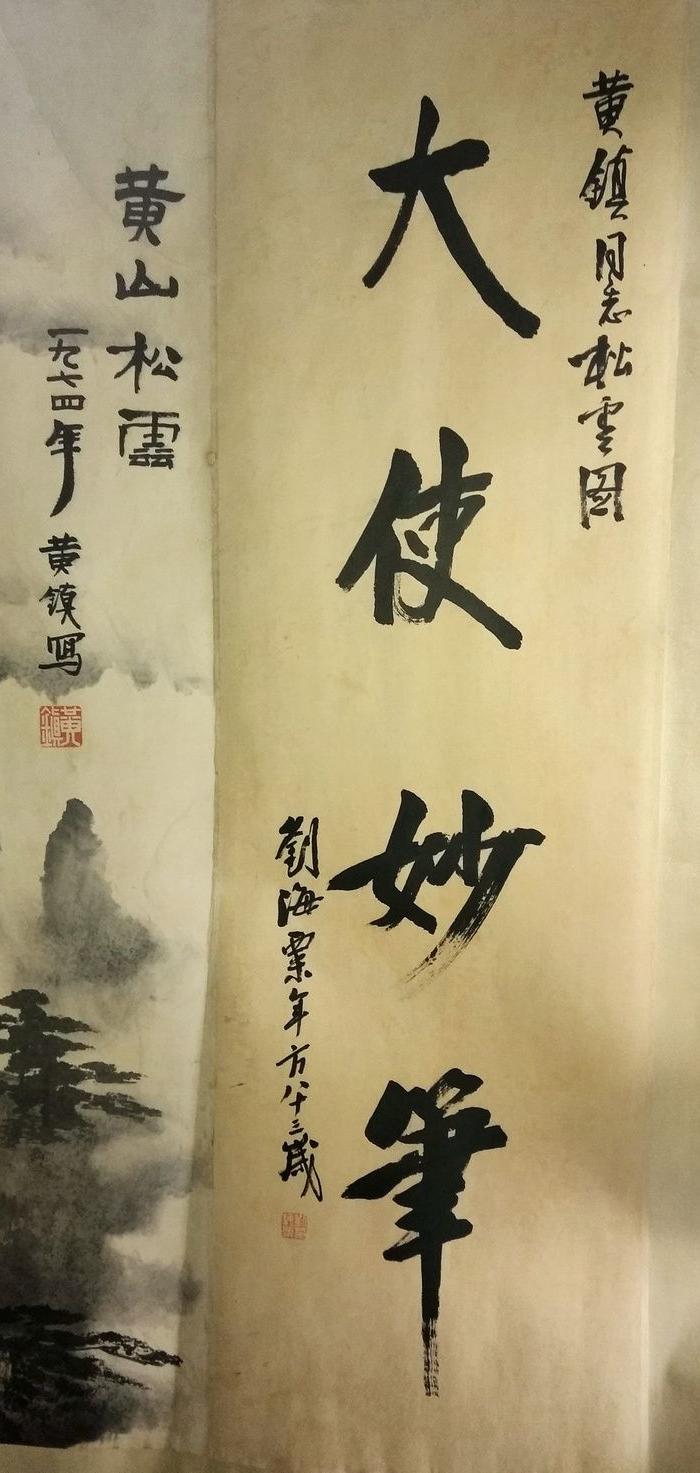 黄鎮同志松雲图
大使妙筆
劉海粟年方八十三歲
黄山松雲
一九七四年
黄鎮寫
黄鎮